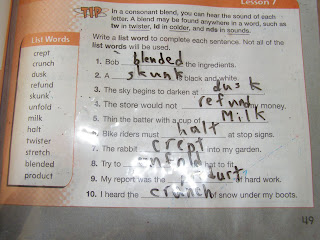 Lesson 7
TIP In a consonant blend, you can hear the sound of each
letter. A blend may be found anywhere in a word, such as
tw in twister, ld in colder, and nds in sounds.
List Words
crept
crunch
dusk
refund
skunk
unfold
milk
halt
twister
stretch
blended
product
Write a list word to complete each sentence. Not all of the
list words will be used.
1. Bob blended the ingredients.
2. A skunk black and white.
3. The sky begins to darken at dusk
4. The store would not refund my money.
5. Thin the batter with a cup of Milk
6. Bike riders must halt at stop signs.
7. The rabbit crept into my garden.
8. Try to unfold hat to fit.
9. My report was the of hard work.
10. I heard the crunch of snow under my boots.
49